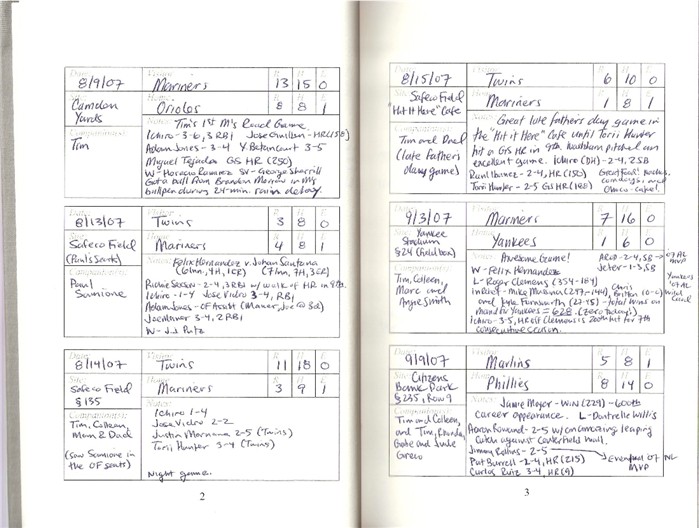 Date: Visitor: R H E
8/9/07 Mariners 13 15 0
Site: Home: R H E
Camden Orioles 8 8 1
Yards
Notes: Tim's 1st M's Road Game.
Companions: Ichiro - 3-6, 3 RBI Jose Guillen - HR (158)
Tim Adam Jones - 3-4 Y. Betancourt 3-5
Miguel Tejada GS HR (250)
W - Horacio Ramirez SV - George Sherrill
Got a ball from Brandon Morrow in M's
bullpen during 24-min. rain delay.
Date: Visitor: R H E
8/13/07 Twins 3 8 0
Site: Home: R H E
Safeco Field Mariners 4 8 1
(Paul's Seats)
Notes: Felix Hernandez v. Johan Santana
Companions: Paul
Richie Sexson - 2-4, 3 RBI w/ walkoff HR in 9th.
Ichiro - 1-4 Jose Vidro 3-4, RBI
Adam Jones - OF Assist
Joe Mauer 3-4, 2 RBI
W - J.J. Putz
Date: Visitor: R H E
8/14/07 Twins 11 18 0
Site: Home: R H E
Safeco Field Mariners 3 9 1
§ 135
Companions: Notes:
Tim, Colleen, Ichiro 1-4
Mom & Dad Jose Vidro 2-2
Justin Morneau 2-5 (Twins)
(Saw Sumione in Torii Hunter 3-4 (Twins)
the OF seats)
Night game.
2
Date: Visitor: R H E
8/15/07 Twins 6 10 0
Site: Home: R H E
Safeco Field Mariners 1 8 1
"Hit It Here" Cafe
Notes: Great late fathers day game in
Companions: the "Hit it Here" Cafe until Torii Hunter
Tim and Dad hit a GS HR in 9th.
(late Fathers excellent game. Ichiro (DH) - 2-4, 2 SB
day game) Raul Ibanez - 2-4, HR (150) Great Food!
Torii Hunter - 2-5 GS HR (188)
Date: Visitor: R H E
9/3/07 Mariners 7 16 0
Site: Home: R H E
Yankee Yankees 1 6 0
Stadium
§ 24 (field box)
Notes: Awesome Game! AROD - 2-4, SB → 07 AL MVP
Companions: W - Felix Hernandez Jeter - 1-3, SB
Tim, Colleen, L - Roger Clemens (354-184)
Marc and In Relief - Mike Mussina
Angie Smith and Kyle Farnsworth - total wins on
mound for Yankees = 628. (Zero today!)
Ichiro - 3-5, HR off Clemens is 200th hit for 7th
consecutive season.
Yankees '07 AL Wild Card
Date: Visitor: R H E
9/9/07 Marlins 5 8 1
Site: Home: R H E
Citizens Phillies 8 14 0
Bank Park
§ 235, Row 9
Notes: Jamie Moyer - WIN (229) - 600th
Companions: career appearance. L - Dontrelle Willis
Tim and Colleen, Aaron Rowand - 2-5 w/ amazing leaping
and Tim, catch against centerfield wall.
Gabe and Jude Jimmy Rollins - 2-5 → Eventual 07 NL MVP
Greco Pat Burrell - 2-4, HR (215)
Carlos Ruiz 3-4, HR (9)
3